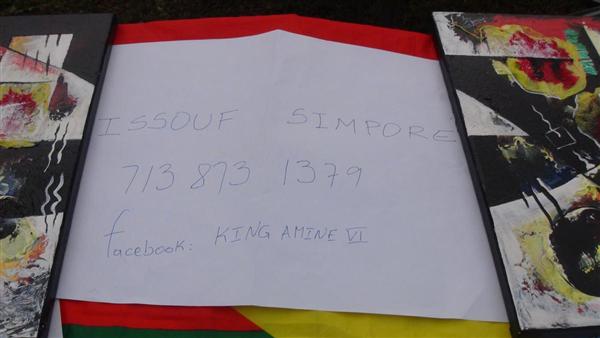 ISSOUF SIMPORE
713 873 1379
facebook: KING AMINE VI